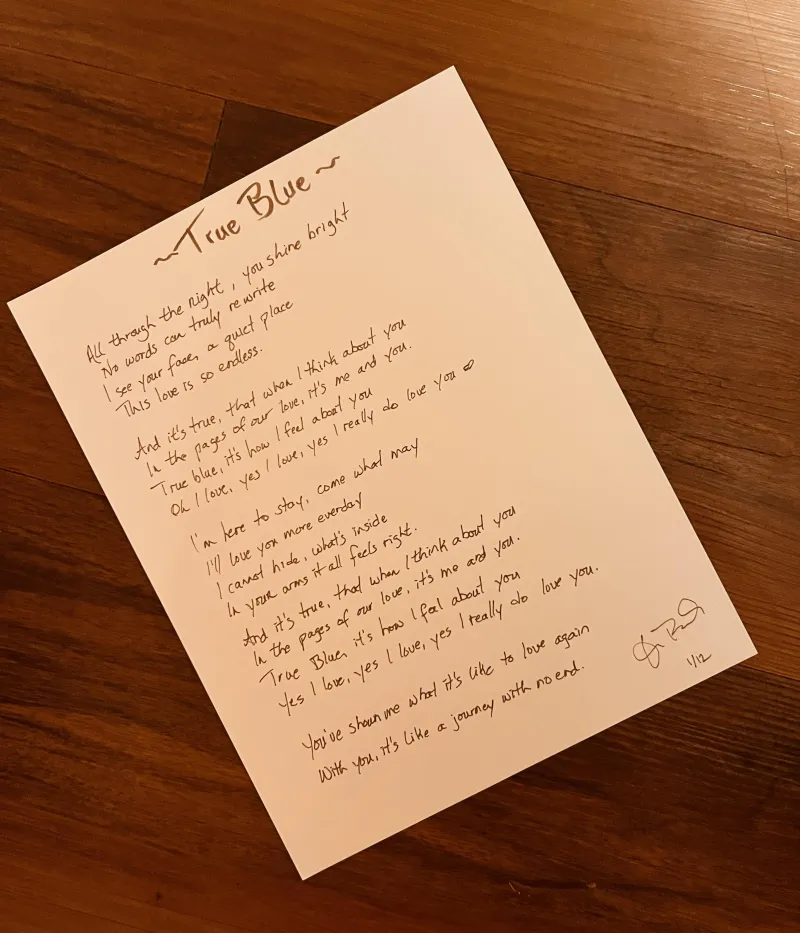 ~ True Blue ~
All through the night, you shine bright
No words can truly rewrite
I see your face, a quiet place
This love is so endless.
And it's true, that when I think about you
In the pages of our love, it's me and you.
True blue, it's how I feel about you
Oh I love, yes I love, yes I really do love you
I'm here to stay, come what may
I'll love you more everday
I cannot hide, what's inside
In your arms it all feels right.
And it's true, that when I think about you
In the pages of our love, it's me and you.
True Blue, it's how I feel about you
Yes I love, yes I love, yes I really do love you.
You've shown me what it's like to love again
With you, it's like a journey with no end.
1/12